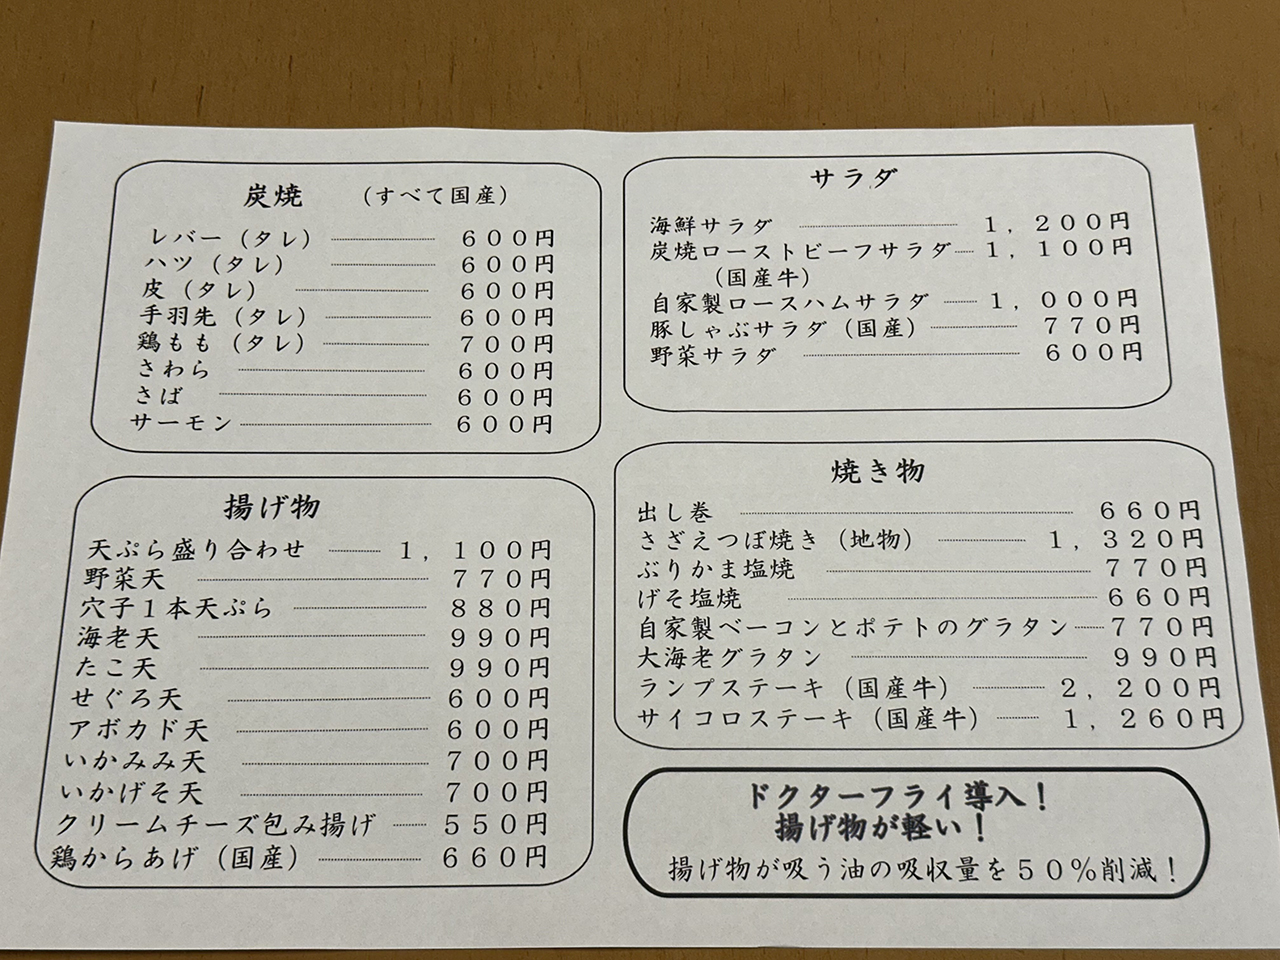 炭焼 （すべて国産）
レバー（タレ） 600円
ハツ（タレ） 600円
皮（タレ） 600円
手羽先（タレ） 600円
鶏もも（タレ） 700円
さわら 600円
さば 600円
サーモン 600円
揚げ物
天ぷら盛り合わせ 1,100円
野菜天 770円
穴子1本天ぷら 880円
海老天 990円
たこ天 990円
せぐろ天 600円
アボカド天 600円
いかみみ天 700円
いかげそ天 700円
クリームチーズ包み揚げ 550円
鶏からあげ（国産） 660円
サラダ
海鮮サラダ 1,200円
炭焼ローストビーフサラダ 1,100円
（国産牛）
自家製ロースハムサラダ 1,000円
豚しゃぶサラダ（国産） 770円
野菜サラダ 600円
焼き物
出し巻 660円
さざえつぼ焼き（地物） 1,320円
ぶりかま塩焼 770円
げそ塩焼 660円
自家製ベーコンとポテトのグラタン 770円
大海老グラタン 990円
ランプステーキ（国産牛） 2,200円
サイコロステーキ（国産牛） 1,260円
ドクターフライ導入！
揚げ物が軽い！
揚げ物が吸う油の吸収量を50％削減！